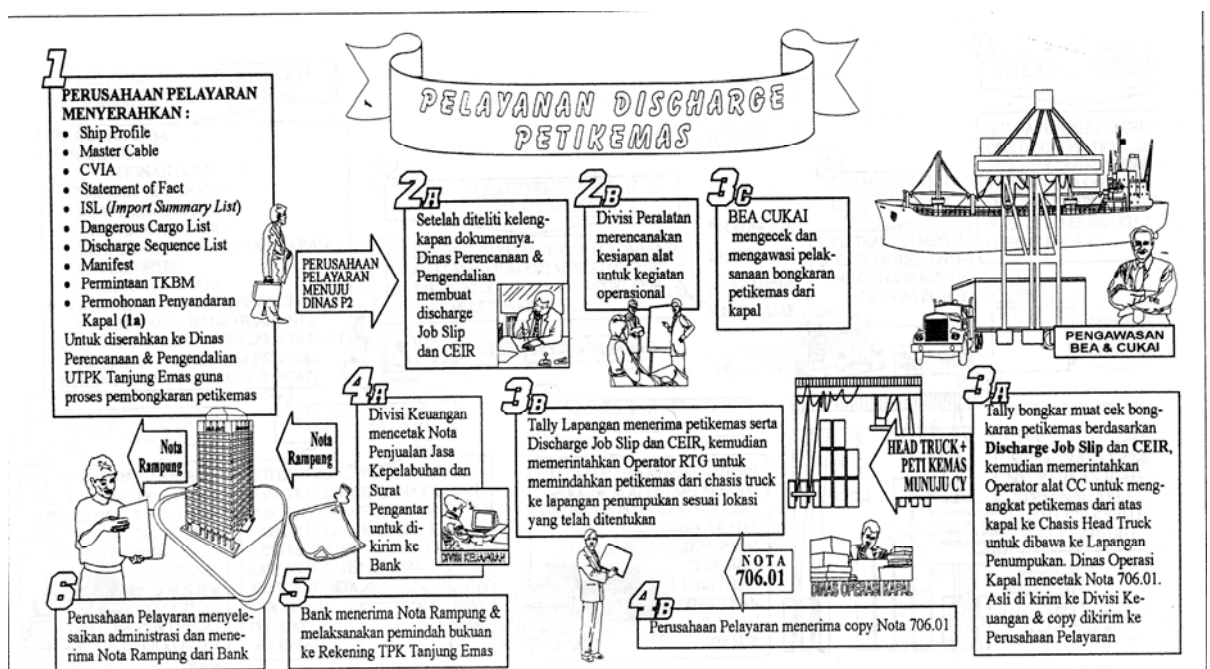 PELAYANAN DISCHARGE
PETIKEMAS
1
PERUSAHAAN PELAYARAN
MENYERAHKAN :
• Ship Profile
• Master Cable
• CVIA
• Statement of Fact
• ISL (Import Summary List)
• Dangerous Cargo List
• Discharge Sequence List
• Manifest
• Permintaan TKBM
• Permohonan Penyandaran
Kapal (1a)
Untuk diserahkan ke Dinas
Perencanaan & Pengendalian
UTPK Tanjung Emas guna
proses pembongkaran petikemas
PERUSAHAAN
PELAYARAN
MENUJU
DINAS P2
2A
Setelah diteliti keleng-
kapan dokumennya.
Dinas Perencanaan &
Pengendalian
membuat
discharge
Job Slip
dan CEIR
2B
Divisi Peralatan
merencanakan
kesiapan alat
untuk kegiatan
operasional
3C
BEA CUKAI
mengecek dan
mengawasi pelak-
sanaan bongkaran
petikemas dari
kapal
PENGAWASAN
BEA & CUKAI
3A
Tally bongkar muat cek bong-
karan petikemas berdasarkan
Discharge Job Slip dan CEIR,
kemudian memerintahkan
Operator alat CC untuk meng-
angkat petikemas dari atas
kapal ke Chasis Head Truck
untuk dibawa ke Lapangan
Penumpukan. Dinas Operasi
Kapal mencetak Nota 706.01.
Asli di kirim ke Divisi Ke-
uangan & copy dikirim ke
Perusahaan Pelayaran
HEAD TRUCK +
PETI KEMAS
MUNUJU CY
3B
Tally Lapangan menerima petikemas serta
Discharge Job Slip dan CEIR, kemudian
memerintahkan Operator RTG untuk
memindahkan petikemas dari chasis truck
ke lapangan penumpukan sesuai lokasi
yang telah ditentukan
NOTA
706.01
DINAS OPERASI KAPAL
4B
Perusahaan Pelayaran menerima copy Nota 706.01
4A
Divisi Keuangan
mencetak Nota
Penjualan Jasa
Kepelabuhan dan
Surat
Pengantar
untuk di-
kirim ke
Bank
DIVISI KEUANGAN
Nota
Rampung
5
Bank menerima Nota Rampung &
melaksanakan pemindah bukuan
ke Rekening TPK Tanjung Emas
Nota
Rampung
6
Perusahaan Pelayaran menyele-
saikan administrasi dan mene-
rima Nota Rampung dari Bank